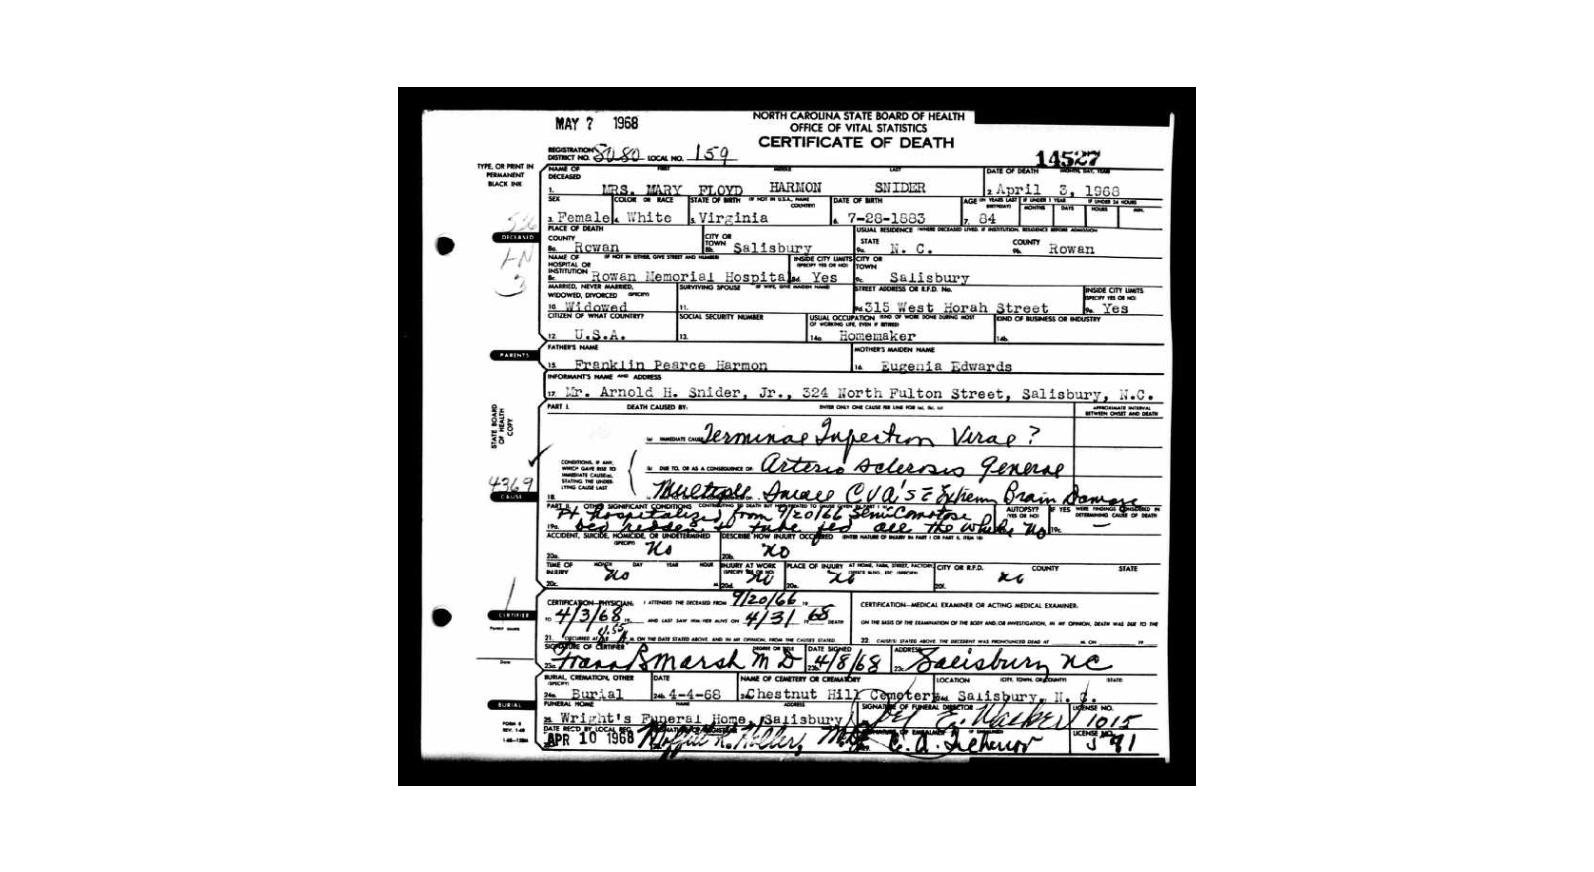 MAY 7 1968
NORTH CAROLINA STATE BOARD OF HEALTH
OFFICE OF VITAL STATISTICS
CERTIFICATE OF DEATH
REGISTRATION DISTRICT NO. 8080 LOCAL NO. 159
14527
TYPE, OR PRINT IN PERMANENT BLACK INK
NAME OF DECEASED FIRST MIDDLE LAST DATE OF DEATH MONTH, DAY, YEAR
1. MRS. MARY FLOYD HARMON SNIDER 2. April 3, 1968
SEX COLOR OR RACE STATE OF BIRTH (IF NOT IN U.S.A., NAME COUNTRY) DATE OF BIRTH AGE (IN YEARS LAST BIRTHDAY) IF UNDER 1 YEAR IF UNDER 24 HOURS
MONTHS DAYS HOURS MIN.
3. Female 4. White 5. Virginia 6. 7-28-1883 7. 84
DECEASED
PLACE OF DEATH USUAL RESIDENCE (WHERE DECEASED LIVED. IF INSTITUTION, RESIDENCE BEFORE ADMISSION)
COUNTY CITY OR TOWN STATE COUNTY
8a. Rowan 8b. Salisbury 9a. N. C. 9b. Rowan
NAME OF HOSPITAL OR INSTITUTION (IF NOT IN EITHER, GIVE STREET AND NUMBER) INSIDE CITY LIMITS (SPECIFY YES OR NO) CITY OR TOWN
8c. Rowan Memorial Hospital 8d. Yes 9c. Salisbury
MARRIED, NEVER MARRIED, WIDOWED, DIVORCED (SPECIFY) SURVIVING SPOUSE (IF WIFE, GIVE MAIDEN NAME) STREET ADDRESS OR R.F.D. No. INSIDE CITY LIMITS (SPECIFY YES OR NO)
10. Widowed 11. 9d. 315 West Horah Street 9e. Yes
CITIZEN OF WHAT COUNTRY? SOCIAL SECURITY NUMBER USUAL OCCUPATION (KIND OF WORK DONE DURING MOST OF WORKING LIFE, EVEN IF RETIRED) KIND OF BUSINESS OR INDUSTRY
12. U.S.A. 13. 14a. Homemaker 14b.
PARENTS
FATHER'S NAME MOTHER'S MAIDEN NAME
15. Franklin Pearce Harmon 16. Eugenia Edwards
INFORMANT'S NAME AND ADDRESS
17. Mr. Arnold H. Snider, Jr., 324 North Fulton Street, Salisbury, N.C.
STATE BOARD OF HEALTH COPY
PART I. DEATH CAUSED BY: ENTER ONLY ONE CAUSE PER LINE FOR (a), (b), (c) APPROXIMATE INTERVAL BETWEEN ONSET AND DEATH
(a) IMMEDIATE CAUSE Terminal Infection Viral?
CONDITIONS, IF ANY, WHICH GAVE RISE TO IMMEDIATE CAUSE (a), STATING THE UNDERLYING CAUSE LAST
(b) DUE TO, OR AS A CONSEQUENCE OF: Arterio Sclerosis General
4369
CAUSE
18. Multiple Small CVA's Brain Damage
PART II. OTHER SIGNIFICANT CONDITIONS CONTRIBUTING TO DEATH BUT NOT RELATED TO CAUSE GIVEN IN PART I AUTOPSY (YES OR NO) IF YES WERE FINDINGS CONSIDERED IN DETERMINING CAUSE OF DEATH
Pt hospitalized from 9/20/66 Semi Comatose
19a. bed ridden & tube fed all the while No 19c. —
ACCIDENT, SUICIDE, HOMICIDE, OR UNDETERMINED (SPECIFY) DESCRIBE HOW INJURY OCCURRED (ENTER NATURE OF INJURY IN PART I OR PART II, ITEM 18)
20a. No 20b. No
TIME OF INJURY MONTH DAY YEAR HOUR INJURY AT WORK (SPECIFY YES OR NO) PLACE OF INJURY AT HOME, FARM, STREET, FACTORY, CITY OR R.F.D. COUNTY STATE
20c. No 20d. No 20e. No 20f. No
CERTIFIER
CERTIFICATION—PHYSICIAN: I ATTENDED THE DECEASED FROM 9/20/66 CERTIFICATION—MEDICAL EXAMINER OR ACTING MEDICAL EXAMINER.
TO 4/3/68 AND LAST SAW HIM/HER ALIVE ON 4/3/ 1968 DEATH ON THE BASIS OF THE EXAMINATION OF THE BODY AND/OR INVESTIGATION, IN MY OPINION, DEATH WAS DUE TO THE
21. OCCURRED AT M. ON THE DATE STATED ABOVE, AND IN MY OPINION, FROM THE CAUSES STATED 22. CAUSE(S) STATED ABOVE. THE DECEDENT WAS PRONOUNCED DEAD AT M. ON 19
SIGNATURE OF CERTIFIER DEGREE OR TITLE DATE SIGNED ADDRESS
23a. Frank B Marsh M D 23b. 4/8/68 23c. Salisbury NC
BURIAL, CREMATION, OTHER (SPECIFY) DATE NAME OF CEMETERY OR CREMATORY LOCATION (CITY, TOWN, OR COUNTY) (STATE)
24a. Burial 24b. 4-4-68 24c. Chestnut Hill Cemetery 24d. Salisbury, N. C.
BURIAL
FUNERAL HOME NAME ADDRESS SIGNATURE OF FUNERAL DIRECTOR LICENSE NO.
25. Wright's Funeral Home, Salisbury 1015
DATE REC'D BY LOCAL REG. SIGNATURE OF EMBALMER LICENSE NO.
APR 10 1968